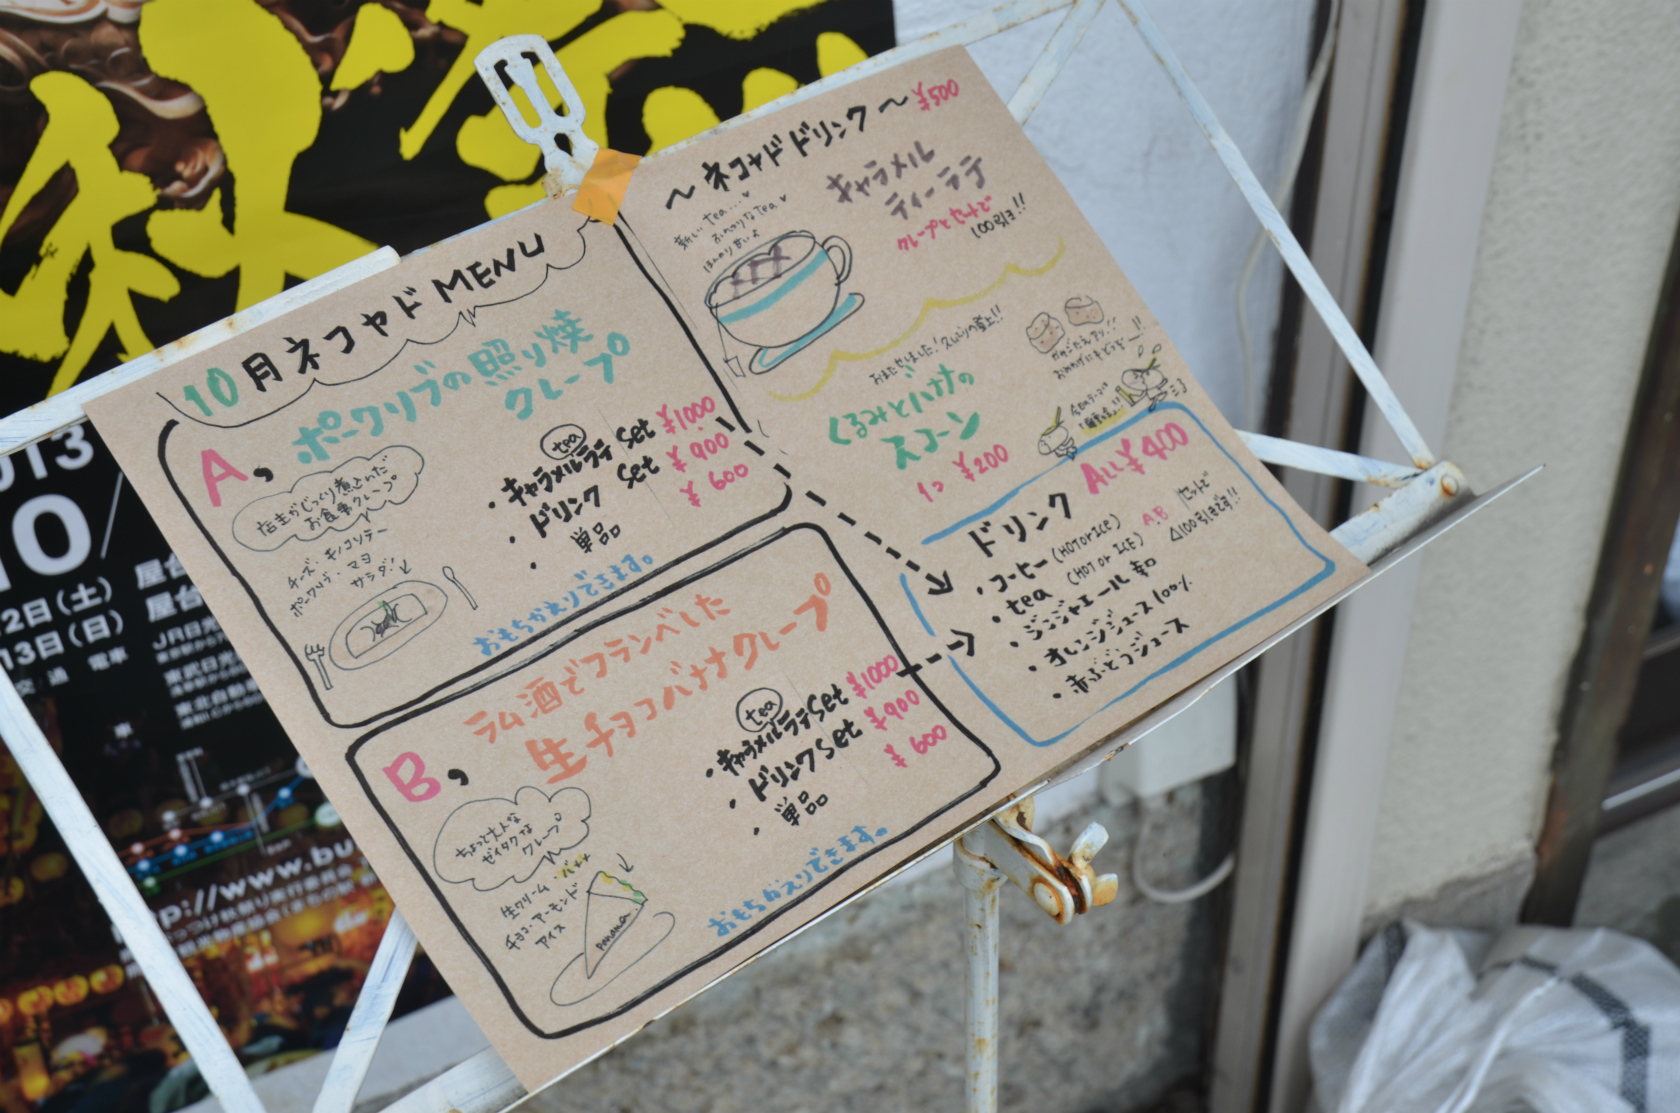 10月ネコヤドMENU
A,
ポークリブの照り焼
クレープ
店主がじっくり煮込んだ
お食事クレープ
チーズ・キノコソテー
ポークリブ・マヨ
サラダ!
tea
・キャラメルラテ set ¥1000
・ドリンク set ¥900
・単品 ¥600
おもちかえりできます。
B,
ラム酒でフランベした
生チョコバナナクレープ
ちょっと大人な
ゼイタクな
クレープ
生クリーム・バナナ
チョコ・アーモンド
アイス
banana
tea
・キャラメルラテset ¥1000
・ドリンクset ¥900
・単品 ¥600
おもちかえりできます。
〜ネコヤドドリンク〜 ¥500
新しいtea…♥
ほんのり甘いよ
キャラメル
ティーラテ
クレープとセットで
100引き!!
おまたせしました!
くるみとバナナの
スコーン
1コ ¥200
ドリンク ALL¥400
・コーヒー(HOTorICE)
・tea (HOT or ICE)
・ジンジャエール 辛
・オレンジジュース100%
・赤ぶどうジュース
A,B セットで
△100引きです!!
2013
10/
12日(土) 屋台
13日(日) 屋台
交通 電車
JR日光
東武日光
東北自動車
車
http://www.bu